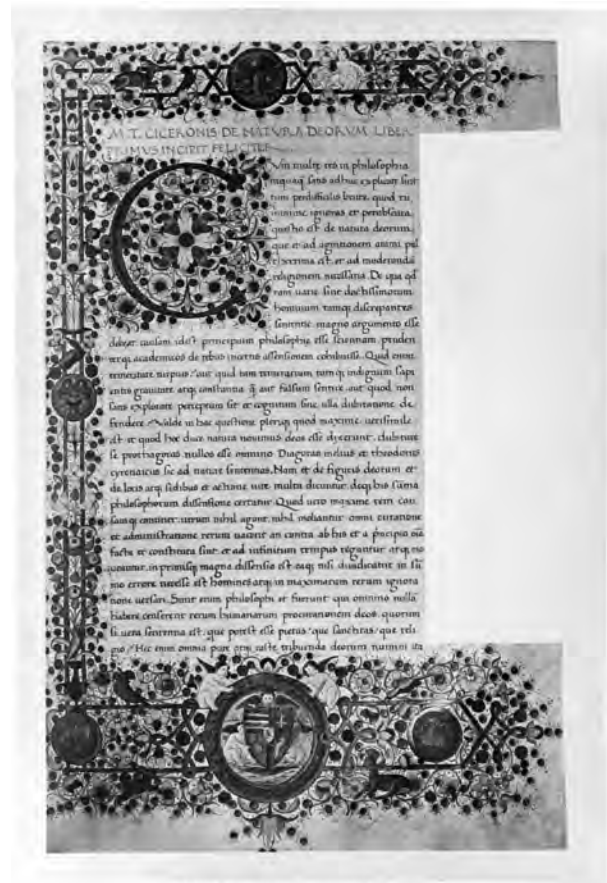 M. T. CICERONIS DE NATVRA DEORVM LIBER
PRIMVS INCIPIT FELICITER
Cum multe res in philosophia
nequaq̃ satis adhuc explicate sint
tum perdifficilis brute. quod tu
minime ignoras et perobscura
questio est de natura deorum.
que et ad agnitionem animi pul
cherrima est. et ad moderandã
religionem necessaria. De qua qd̃
tam uarie sint doctissimorum
hominum tamq̃ discrepantes
sententie magno argumento esse
debeat causam idest principium philosophie esse scientiam. pruden
terq; academicos de rebus incertis assensionem cohibuisse. Quid enim
temeritate turpius? aut quid tam temerarium tamq; indignum sapi
entis grauitate atq; constantia q̃ aut falsum sentire. aut quod non
satis explorate perceptum sit et cognitum sine ulla dubitatione de
fendere. Valde in hac questione pleriq; quod maxime uerisimile
est et quod hoc duce natura uenimus deos esse dixerunt. dubitare
se prothagoras nullos esse omnino Diagoras melius et theodorus
cyrenaicus sic ad nature sententias. Nam et de figuris deorum et
de locis atq; sedibus et actione uite multa dicuntur deq; his sũma
philosophorum dissensione certatur. Quod uero maxime rem cau
samq; continet. utrum nihil agant. nihil moliantur omni curatione
et administratione rerum uacent an contra ab his et a prĩcipio oĩa
facta et constituta sint. et ad infinitum tempus regantur atq; mo
ueantur. in primisq; magna dissensio est eaq; nisi diiudicatur in sũ
mo errore necesse est homines atq; in maximarum rerum ignora
tione uersari. Sunt enim philosophi et fuerunt qui omnino nullã
habere censerent rerum humanarum procurationem deos. quorum
si uera sententia est. que potest esse pietas? que sanctitas? que reli
gio? Hec enim omnia pure atq; caste tribuenda deorum numini ita